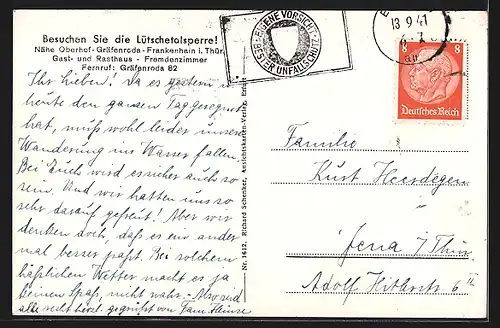 Besuchen Sie die Lütschetalsperre!
Nähe Oberhof-Gräfenroda-Frankenhain i. Thür.
Gast- und Rasthaus - Fremdenzimmer
Fernruf: Gräfenroda 82
Ihr Lieben! Da es gestern u.
heute den ganzen Tag geregnet
hat, muß wohl leider unsere
Wanderung ins Wasser fallen.
Bei Euch wird es sicher auch so
sein. Und wir hatten uns so
sehr darauf gefreut! Aber wir
denken doch, daß es ein ander
mal besser paßt. Bei solchem
häßlichen Wetter macht es ja
keinen Spaß, nicht wahr. - Also seid
alle recht herzl. gegrüßt von Fam.
Nr. 1612. Richard Schenker, Ansichtskarten-Verlag, Erfurt
EIGENE VORSICHT
BESTER UNFALLSCHUTZ
13 9.41
8 8
Deutsches Reich
Familie
Kurt Heerdegen
Jena i/Thür
Adolf Hitlerstr. 6